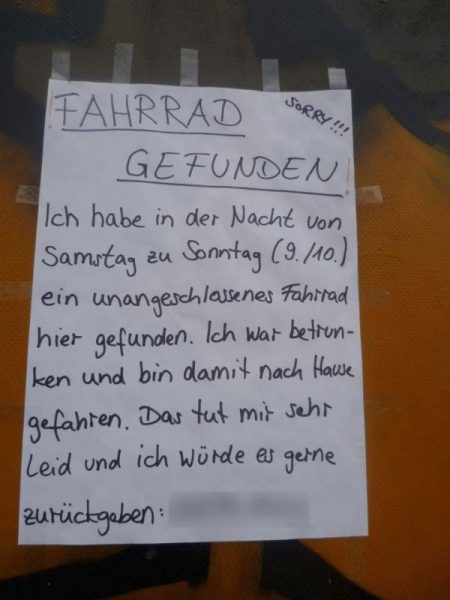 FAHRRAD
SORRY!!!
GEFUNDEN
Ich habe in der Nacht von
Samstag zu Sonntag (9./10.)
ein unangeschlossenes Fahrrad
hier gefunden. Ich war betrun-
ken und bin damit nach Hause
gefahren. Das tut mir sehr
Leid und ich würde es gerne
zurückgeben: